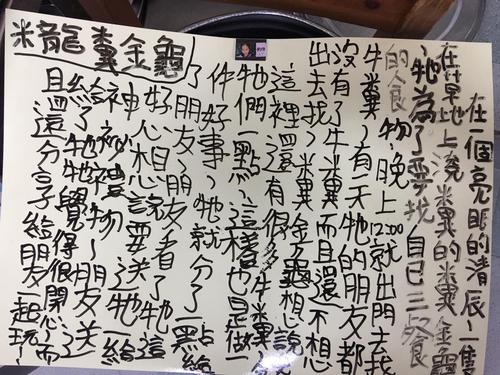 米龍糞金龜
在一個亮眼的清辰~一隻
在草地上滾糞的糞金龜
~牠為了要找自己三餐
的食物~晚上12:00就出門去找
牛糞~有一天牠的朋友都
沒有了牛糞而且還不想
出去找~糞金龜想說
這裡還有很多牛糞~
牠們一點~這樣也是做一
件好事~牠就分了一點給
了朋友了~朋友看了牠這
好心想說要送牠一給
神祕禮物~朋友送
給了牠~牠覺得很開心~而
且還分享給朋友一起玩~